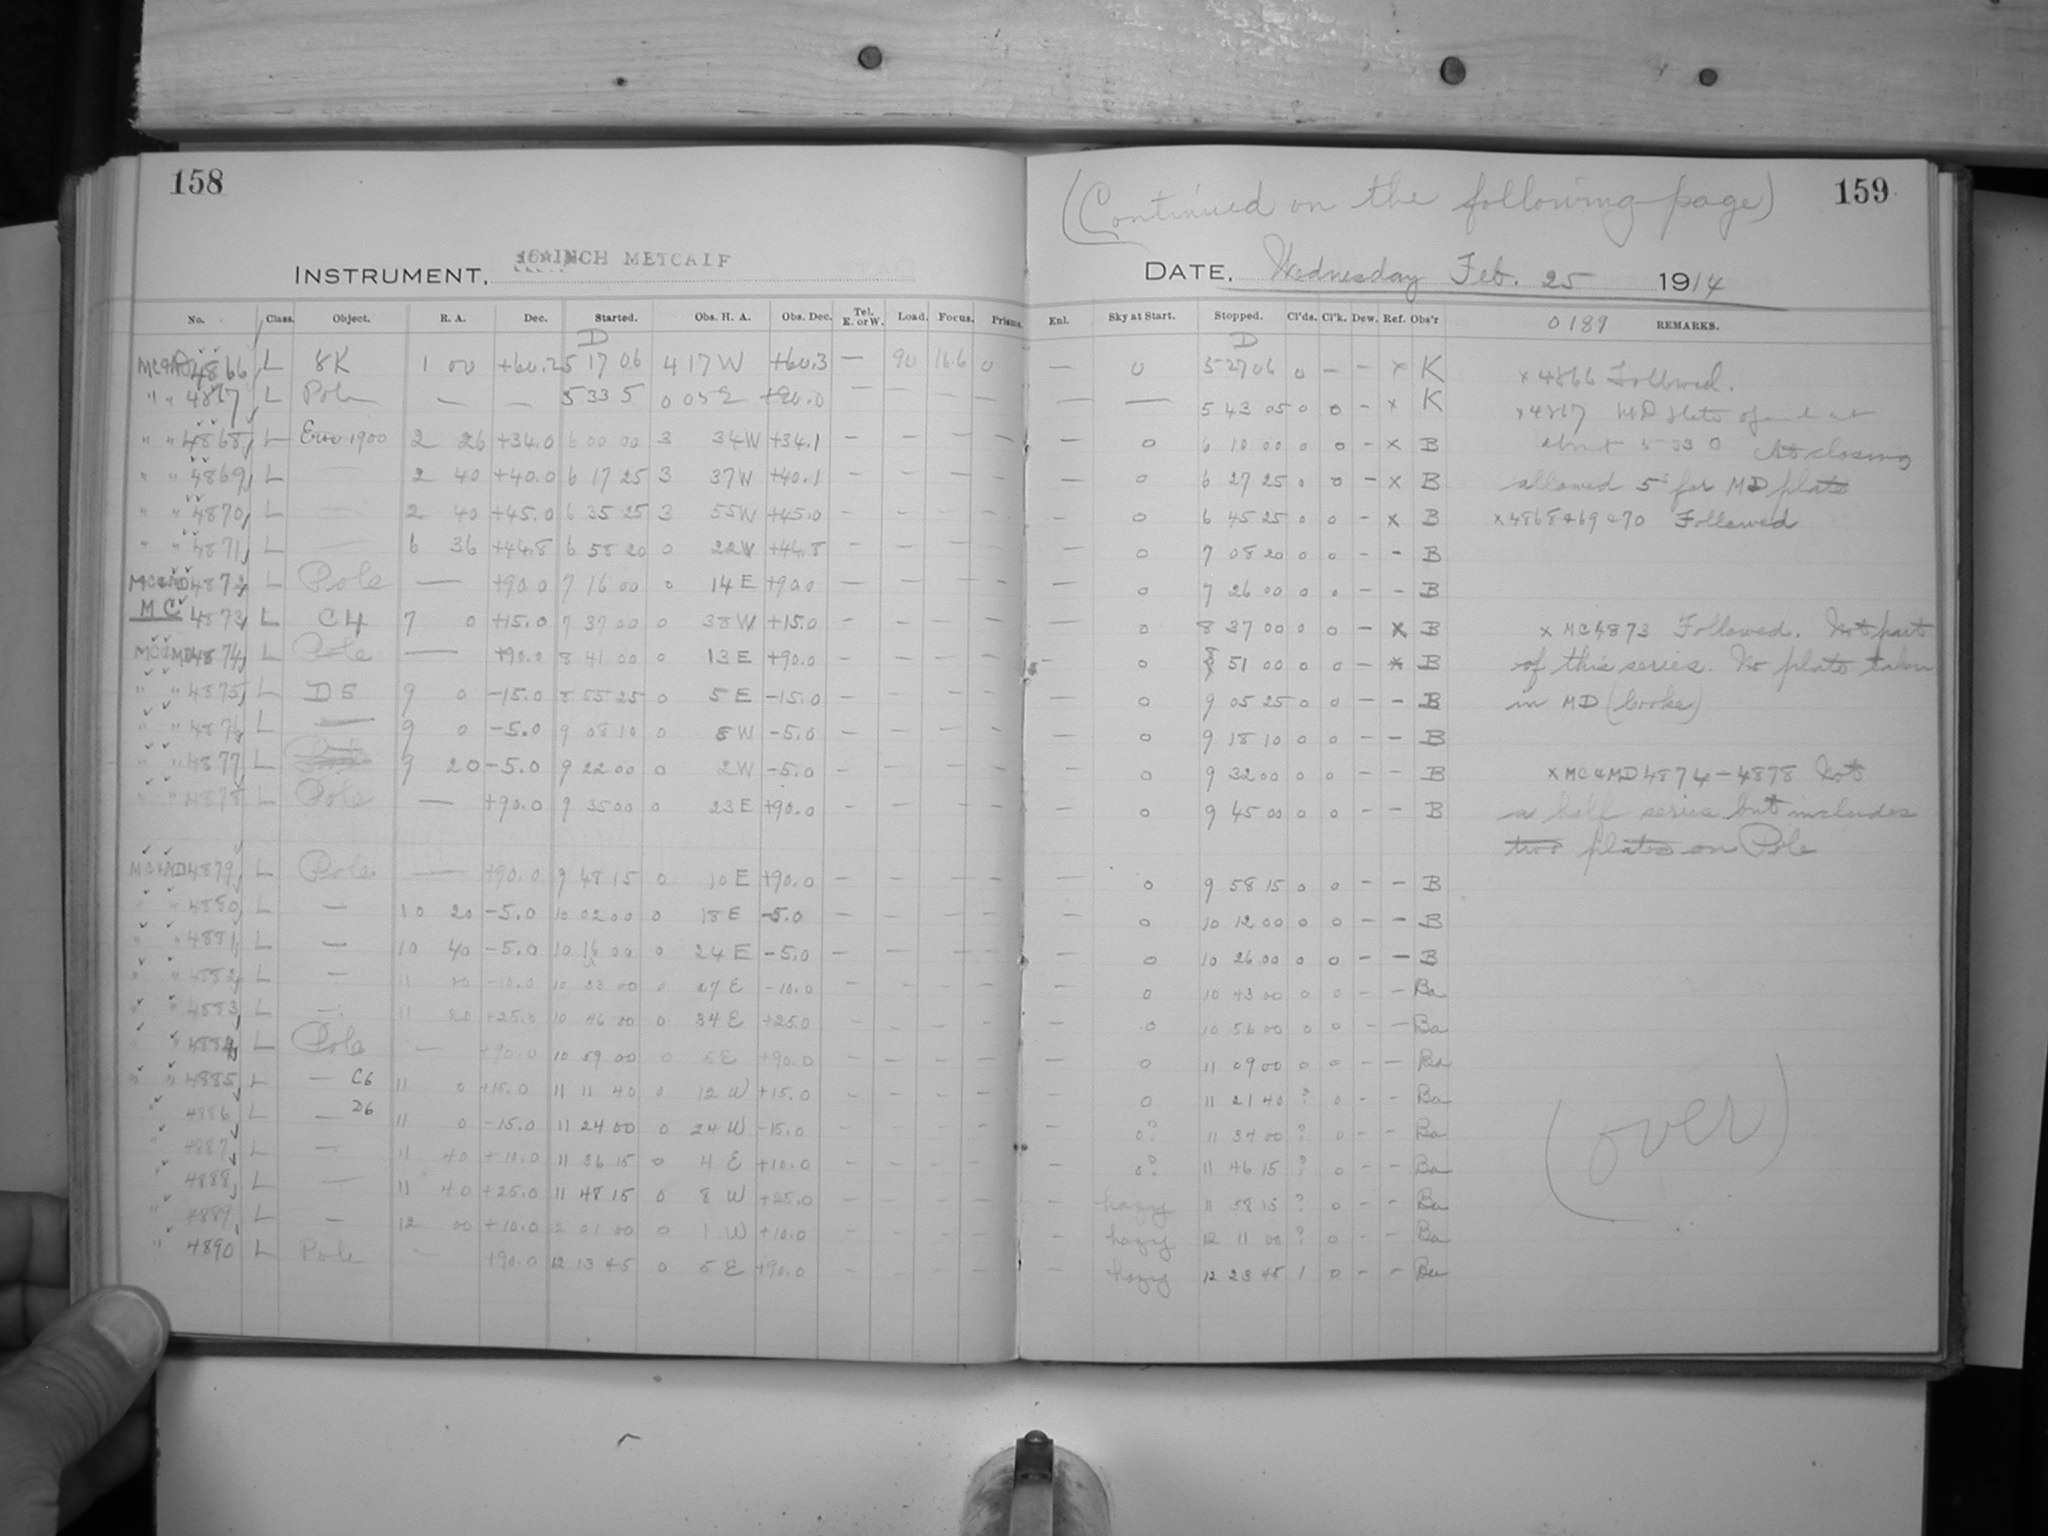 158
INSTRUMENT, 16-INCH METCALF
No. Class. Object. R. A. Dec. Started. Obs. H. A. Obs. Dec. Tel. E. or W. Load. Focus. Prisms.
D
4866 L 8K 1 00 +60.2 5 17 06 4 17 W +60.3 — 90 16.6 0
" " 4867 L Pole — — 5 33 5 0 05 E +90.0 — — — —
" " 4868 L 1900 2 26 +34.0 6 00 00 3 34 W +34.1 — — — —
" " 4869 L — 2 40 +40.0 6 17 25 3 37 W +40.1 — — — —
" " 4870 L — 2 40 +45.0 6 35 25 3 55 W +45.0 — — — —
" " 4871 L — 6 36 +44.8 6 58 20 0 22 W +44.8 — — — —
MC&MD 4872 L Pole — +90.0 7 16 00 0 14 E +90.0 — — — —
MC 4873 L C4 7 0 +15.0 7 37 00 0 38 W +15.0 — — — —
MC&MD 4874 L Pole — +90.0 8 41 00 0 13 E +90.0 — — — —
" " 4875 L D5 9 0 -15.0 8 55 25 0 5 E -15.0 — — — —
" " 4876 L — 9 0 -5.0 9 08 10 0 8 W -5.0 — — — —
" " 4877 L 9 20 -5.0 9 22 00 0 2 W -5.0 — — — —
" " 4878 L Pole — +90.0 9 35 00 0 23 E +90.0 — — — —
MC&MD 4879 L Pole — +90.0 9 48 15 0 10 E +90.0 — — — —
" " 4880 L — 10 20 -5.0 10 02 00 0 18 E -5.0 — — — —
" " 4881 L — 10 40 -5.0 10 16 00 0 24 E -5.0 — — — —
" " 4882 L — 11 00 -10.0 10 33 00 0 27 E -10.0 — — — —
" " 4883 L — 11 20 +25.0 10 46 00 0 34 E +25.0 — — — —
" 4884 L Pole — +90.0 10 59 00 0 5 E +90.0 — — — —
" " 4885 L — C6 11 0 +15.0 11 11 40 0 12 W +15.0 — — — —
" 4886 L — D6 11 0 -15.0 11 24 00 0 24 W -15.0 — — — —
" 4887 L — 11 40 +10.0 11 36 15 0 4 E +10.0 — — — —
" 4888 L — 11 40 +25.0 11 48 15 0 8 W +25.0 — — — —
" 4889 L — 12 00 +10.0 12 01 00 0 1 W +10.0 — — — —
" 4890 L Pole — +90.0 12 13 45 0 5 E +90.0 — — — —
(Continued on the following page) 159
DATE, Wednesday Feb. 25 1914
Enl. Sky at Start. Stopped. Cl'ds. Cl'k. Dew. Ref. Obs'r 0189 REMARKS.
D
— 0 5 27 06 0 — — x K x 4866 Followed.
— — 5 43 05 0 0 - x K x 4867 MD
— 0 6 10 00 0 0 - x B about 5 33 0 At closing
— 0 6 27 25 0 0 - x B allowed 5s for MD plate
— 0 6 45 25 0 0 - x B x 4868&69&70 Followed
— 0 7 08 20 0 0 - - B
— 0 7 26 00 0 0 - - B
0 8 37 00 0 0 - x B x MC4873 Followed. Not part
0 8 51 00 0 0 - x B of this series. No plate taken
— 0 9 05 25 0 0 - - B in MD (broke)
— 0 9 18 10 0 0 - - B
— 0 9 32 00 0 0 - - B x MC&MD 4874-4878 Not
— 0 9 45 00 0 0 - - B a half series but includes
two plates on Pole
— 0 9 58 15 0 0 - - B
— 0 10 12 00 0 0 - - B
— 0 10 26 00 0 0 - - B
— 0 10 43 00 0 0 - - Ba
— 0 10 56 00 0 0 - - Ba
— 0 11 09 00 0 0 - - Ba
— 0 11 21 40 ? 0 - - Ba
— 0? 11 34 00 ? 0 - - Ba
— 0? 11 46 15 ? 0 - - Ba
— hazy 11 58 15 ? 0 - - Ba
— hazy 12 11 00 ? 0 - - Ba
— hazy 12 23 45 1 0 - - Ba
(over)